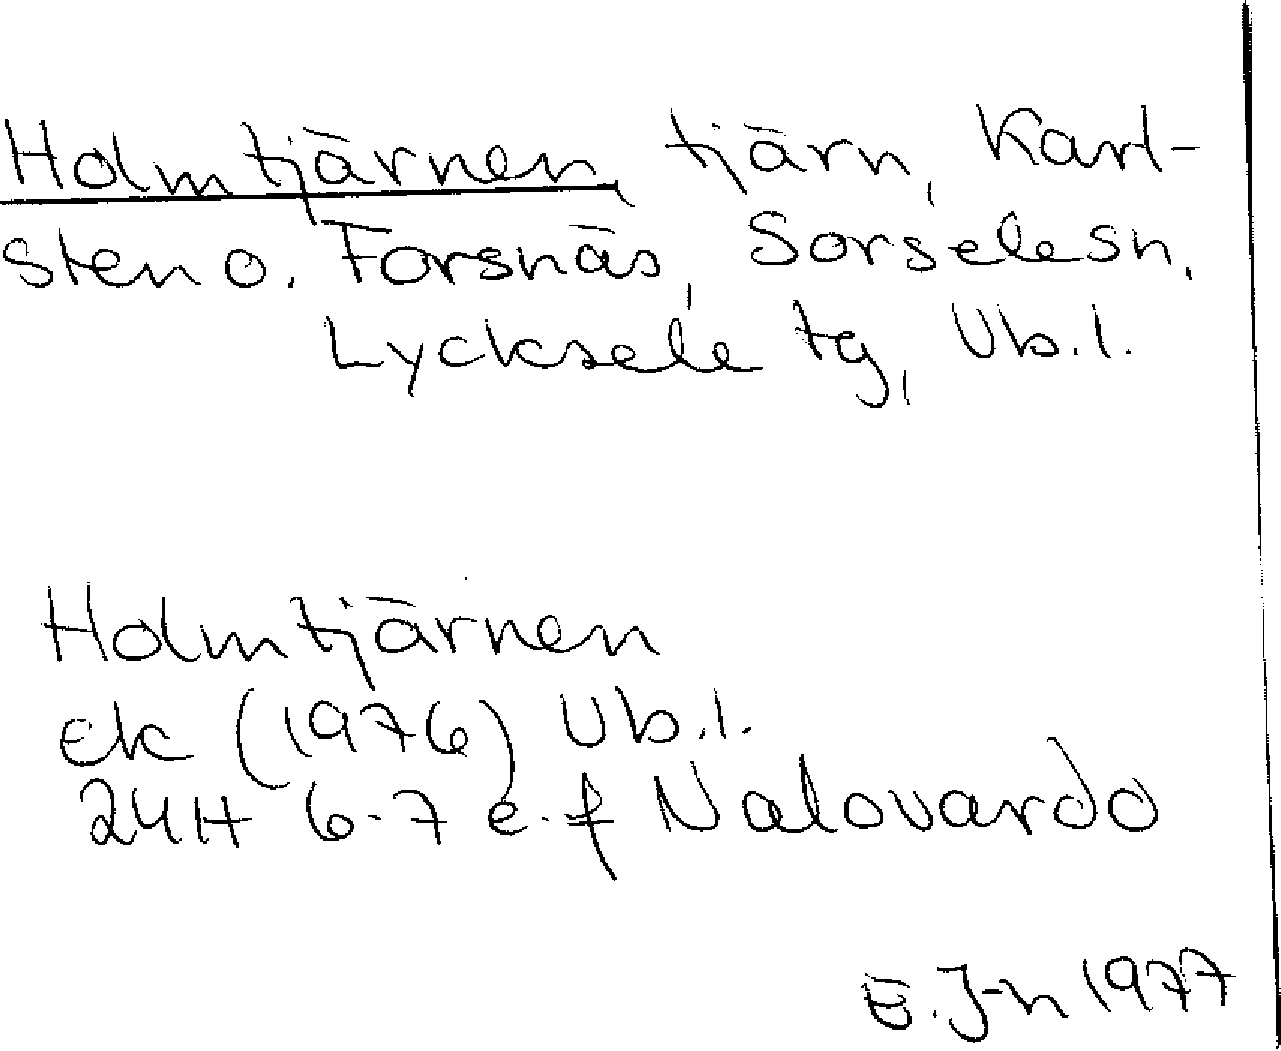 Holmtjärnen, tjärn, Karl-
sten o. Forsnäs, Sorselesn,
Lycksele tg, Vb.l.
Holmtjärnen
ek (1976) Vb.l.
24H 6-7 e-f Nalovardo
E.J-n 1977